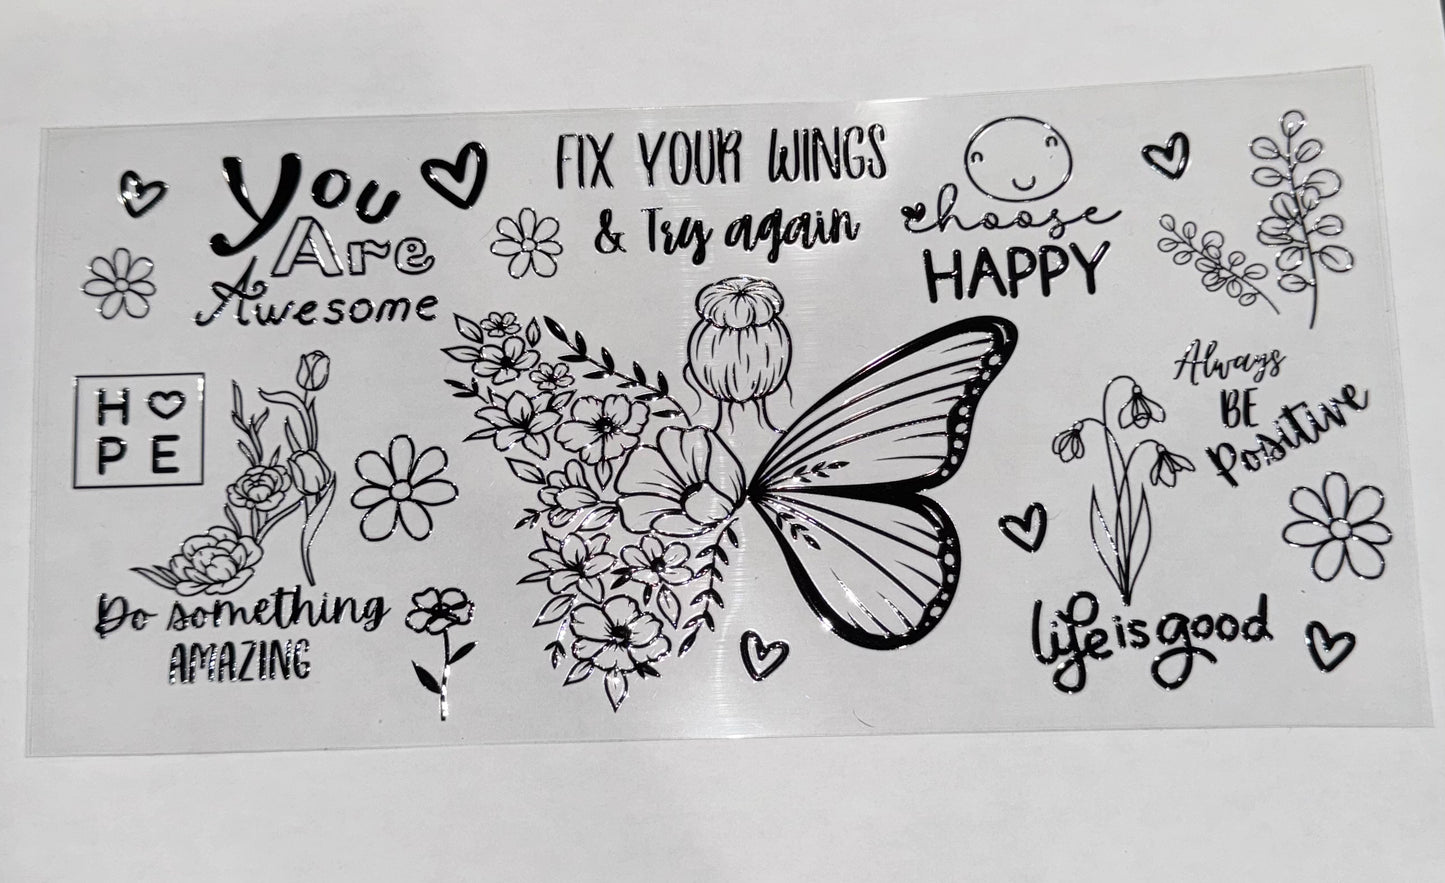 You
Are
Awesome
FIX YOUR WINGS
& Try again
choose
HAPPY
Always
BE
Positive
H♡
PE
Do something
AMAZING
life is good